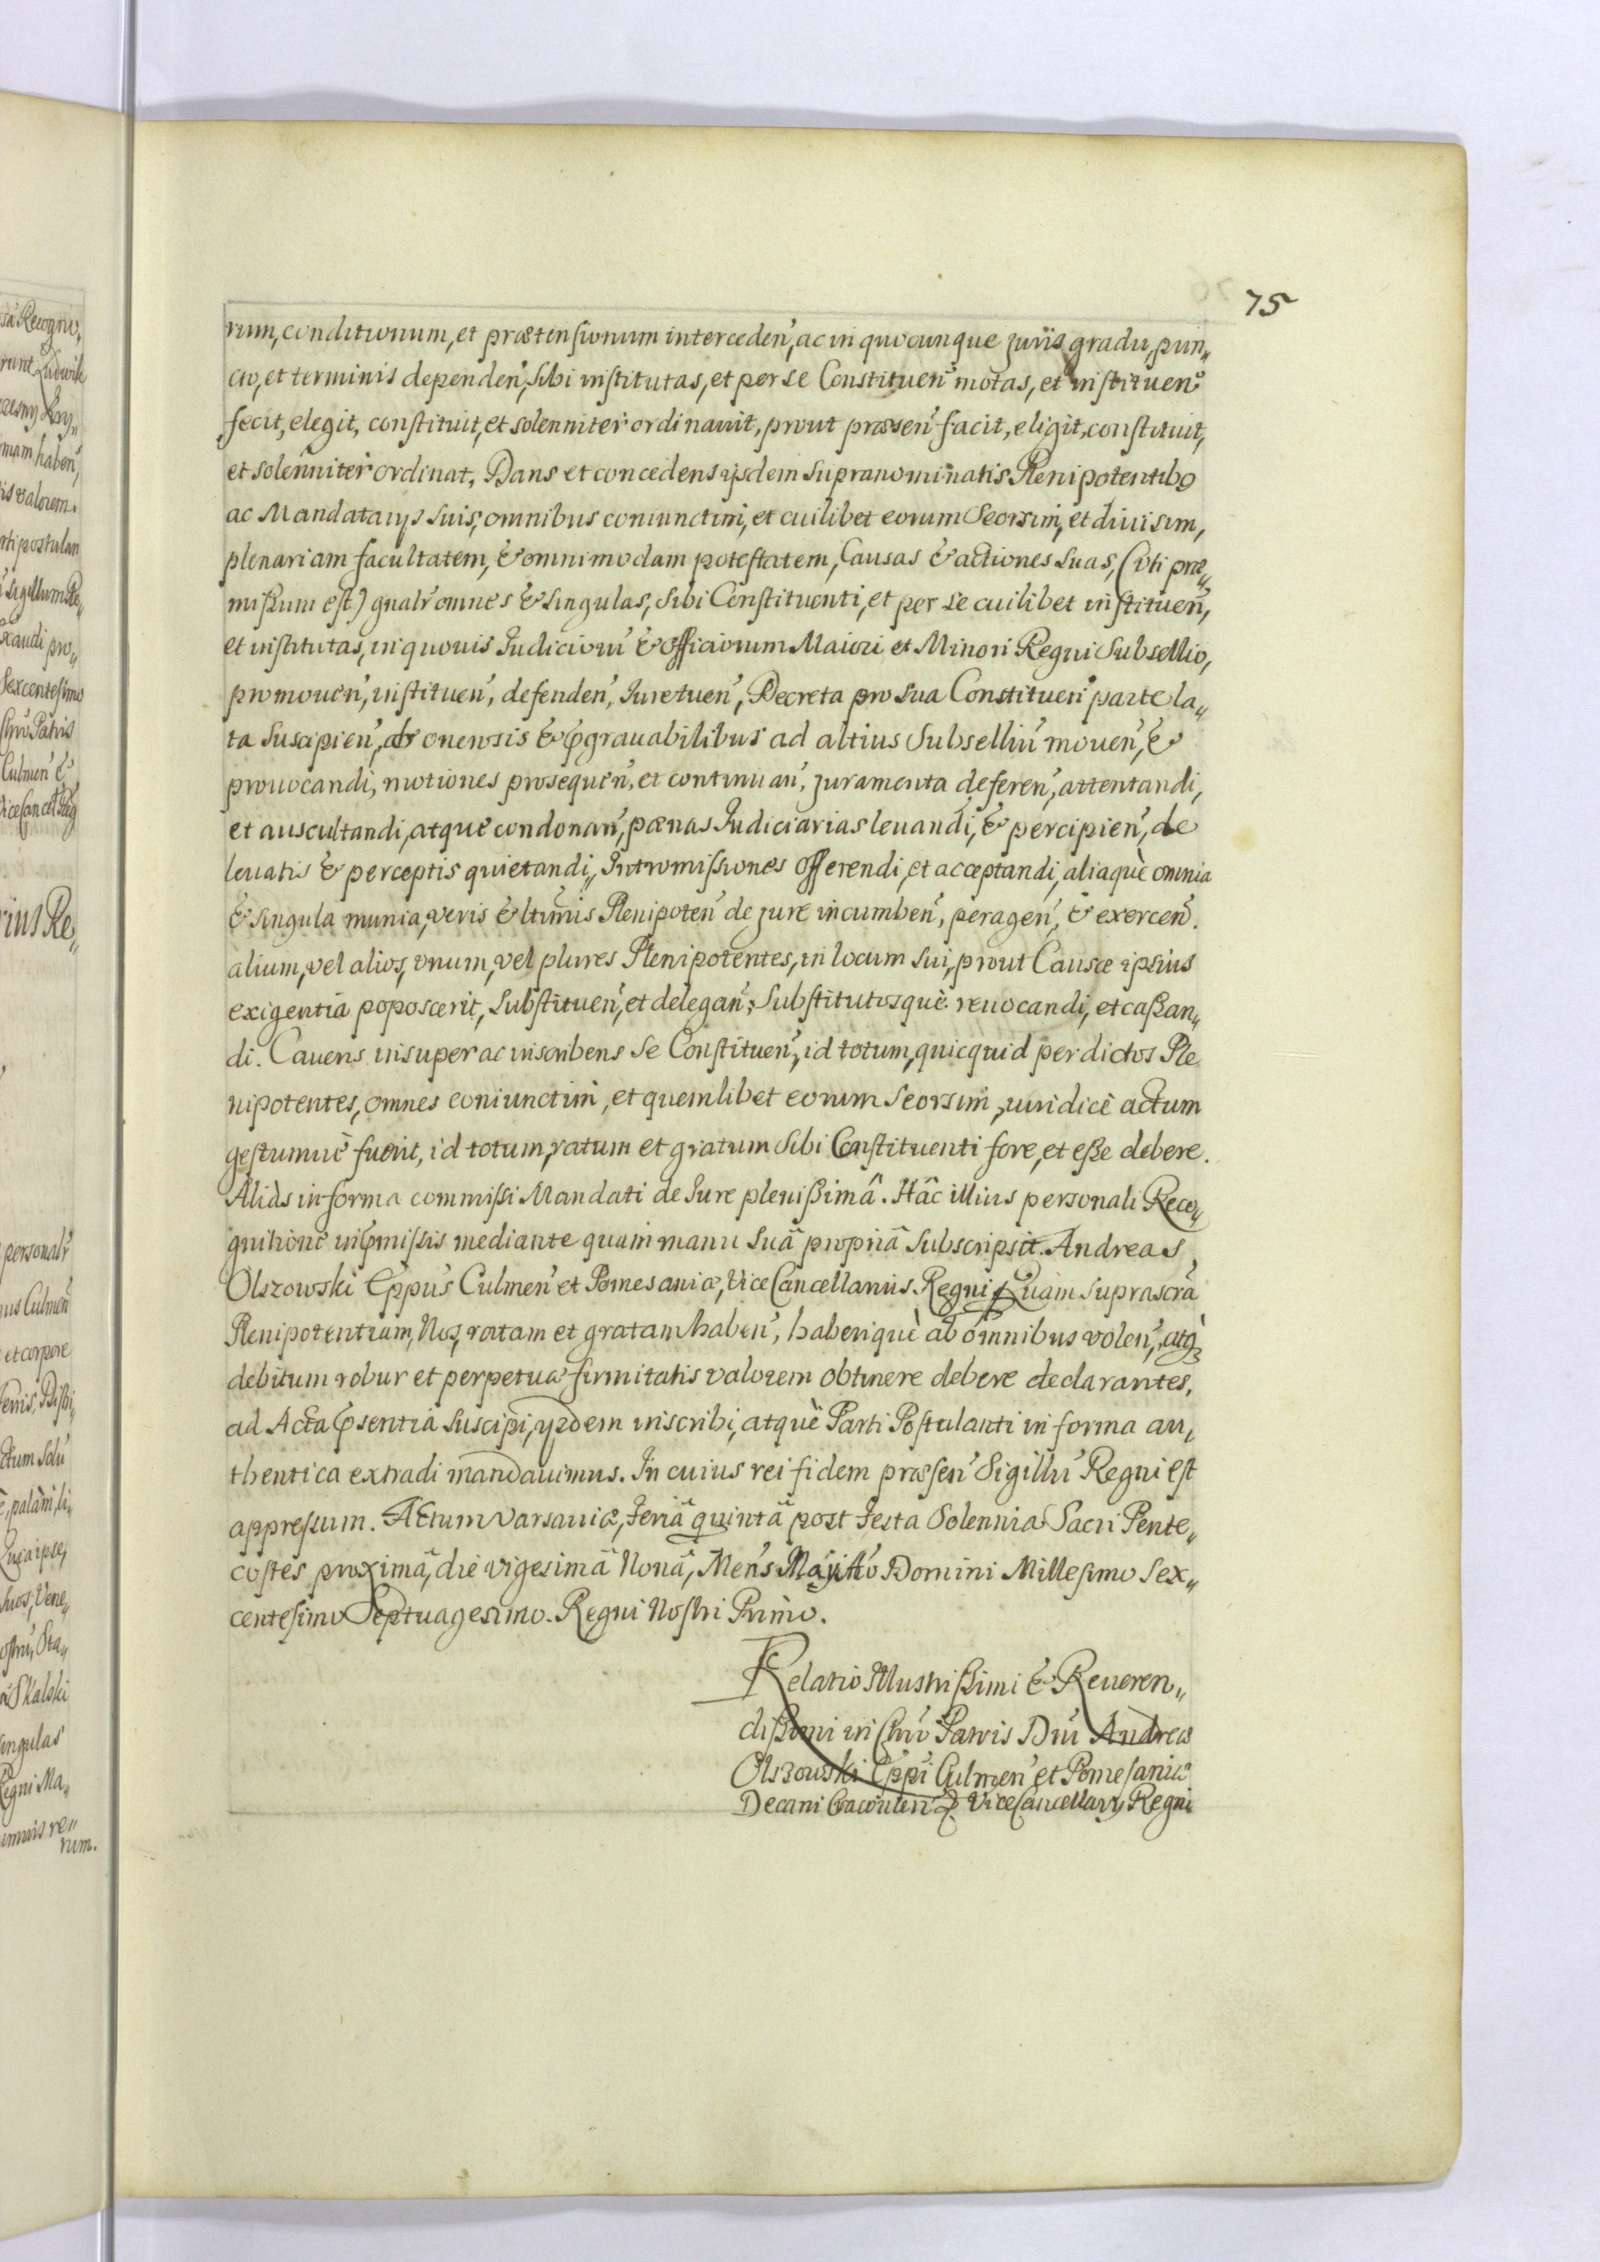 75
rum, conditionum, et prætensionum interceden, ac in quocunque juris gradu, pun„
cto, et terminis dependen, sibi institutas, et per se Constituen motas, et instituen
fecit, elegit, constituit, et solenniter ordinavit, prout præsen facit, eligit, constituit,
et solenniter ordinat, Dans et concedens ijsdem supranominatis Plenipotentibo
ac Mandatarijs suis, omnibus coniunctim, et cuilibet eorum seorsim, et divisim,
plenariam facultatem, & omnimodam potestatem, Causas & actiones suas, (vti præ„
missum est) gnalr omnes & singulas, sibi Constituenti, et per se cuilibet instituen,
et institutas, in quovis Judiciorũ & officiorum Maiori et Minori Regni Subsellio,
promoven, instituen, defenden, Jure tuen, Decreta pro sua Constituen parte la„
ta suscipien, ab onerosis & pgravabilibus ad altius Subselliũ moven, &
provocandi, motiones prosequen, et continuan, juramenta deferen, attentandi,
et auscultandi, atque condonan, pænas Judiciarias levandi, & percipien, de
levatis & perceptis quietandi, Intromissiones offerendi, et acceptandi, aliaquè omnia
& singula munia, veris & ltimis Plenipoten de jure incumben, peragen, & exercen.
alium, vel alios, vnum, vel plures Plenipotentes, in locum sui, prout Causæ ipsius
exigentia poposcerit, substituen, et delegan, Substitutosquè revocandi, et cassan„
di. Cavens insuper ac inscribens se Constituen, id totum, quicquid per dictos Ple
nipotentes, omnes coniunctim, et quemlibet eorum seorsim, juridicè actum
gestumuè fuerit, id totum, ratum et gratum sibi Constituenti fore, et esse debere.
Aliàs in forma commissi Mandati de Jure plenissimâ. Hâc illius personali Reco„
gnitione in pmissis mediante quam manu suâ propriâ subscripsit. Andreas
Olszowski Eppus Culmen et Pomesaniæ, Vice Cancellarius Regni Quam suprascrã
Plenipotentiam, Nos, ratam et gratam haben, haberiquè ab omnibus volen, atq
debitum robur et perpetuæ firmitatis valorem obtinere debere declarantes,
ad Acta psentia suscipi, ijsdem inscribi, atquè Parti Postulanti in forma au„
thentica extradi mandavimus. In cuius rei fidem præsen Sigillũ Regni est
appressum. Actum Varsaviæ, feriâ quintâ post festa Solennia Sacri Pente„
costes proximâ, die vigesimâ Nonâ, Mens Maÿ Aõ Domini Millesimo sex„
centesimo Septuagesimo. Regni Nostri Primo.
Relatio Illustrissimi & Reveren„
dissimi in Chrõ Patris Dnĩ Andreæ
Olszowski Eppi Culmen et Pomesaniæ
Decani Cracovien Vice Cancellarij Regni